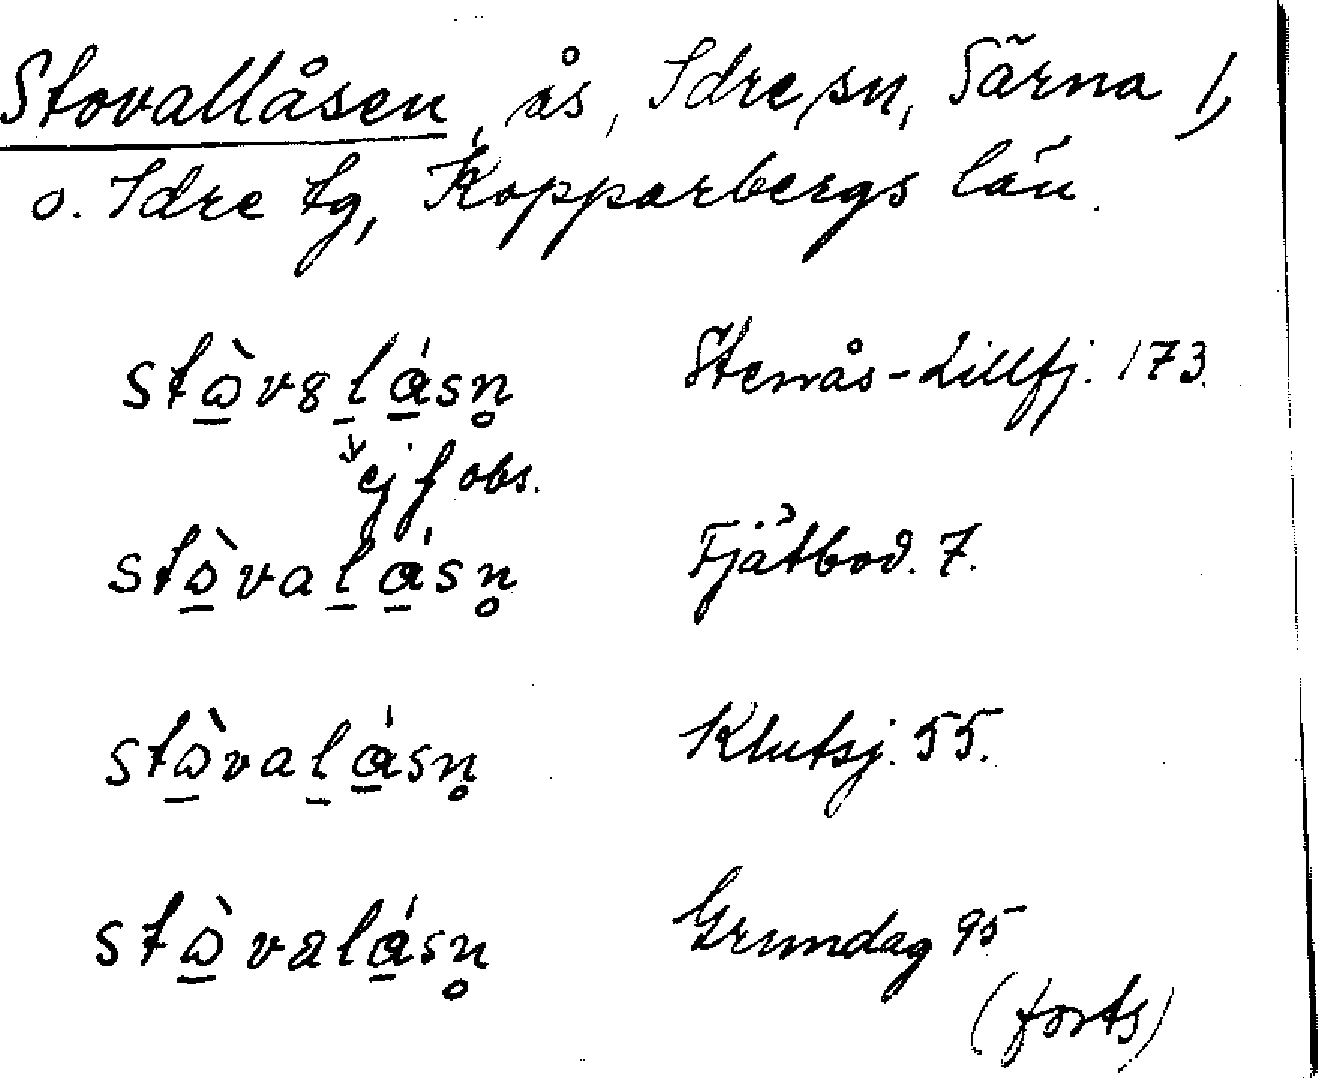 Stovallåsen, ås, Idre sn, Särna l,
o. Idre tg, Kopparbergs län.
Stenås-Lillfj. 173.
ej f obs.
Fjätbod. 7.
stòvalásn̥ Klutsj. 55.
stòvalásn̥ Grundag 95
(forts)